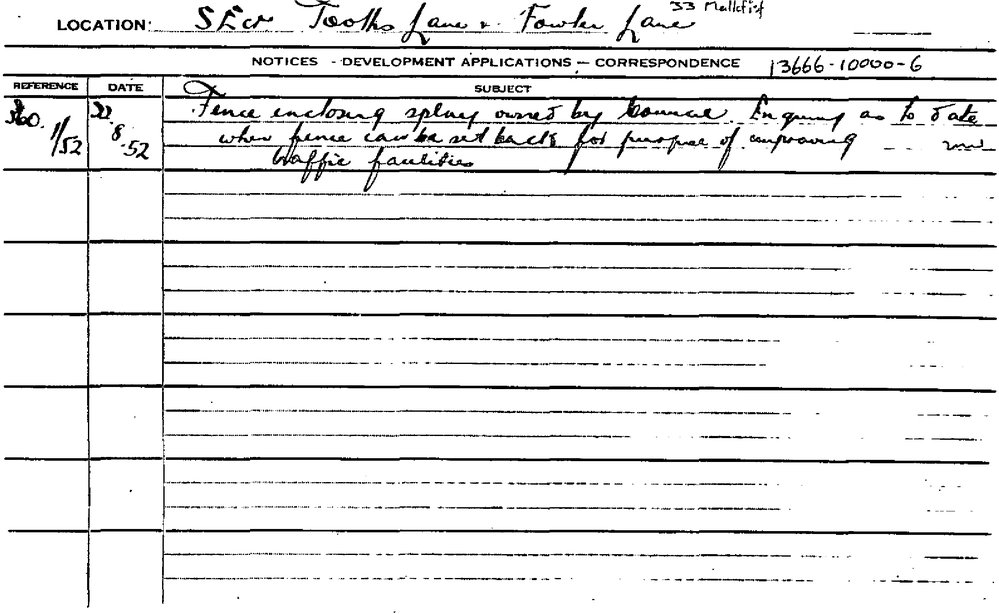 33
LOCATION: SE cr Tooths Lane & Fowler Lane
NOTICES - DEVELOPMENT APPLICATIONS — CORRESPONDENCE 13666-10000-6
REFERENCE DATE SUBJECT
360. 22 Fence enclosing splay owned by Council. Enquiry as to date
1/52 8 when fence can be set back for purpose of improving
52 traffic facilities